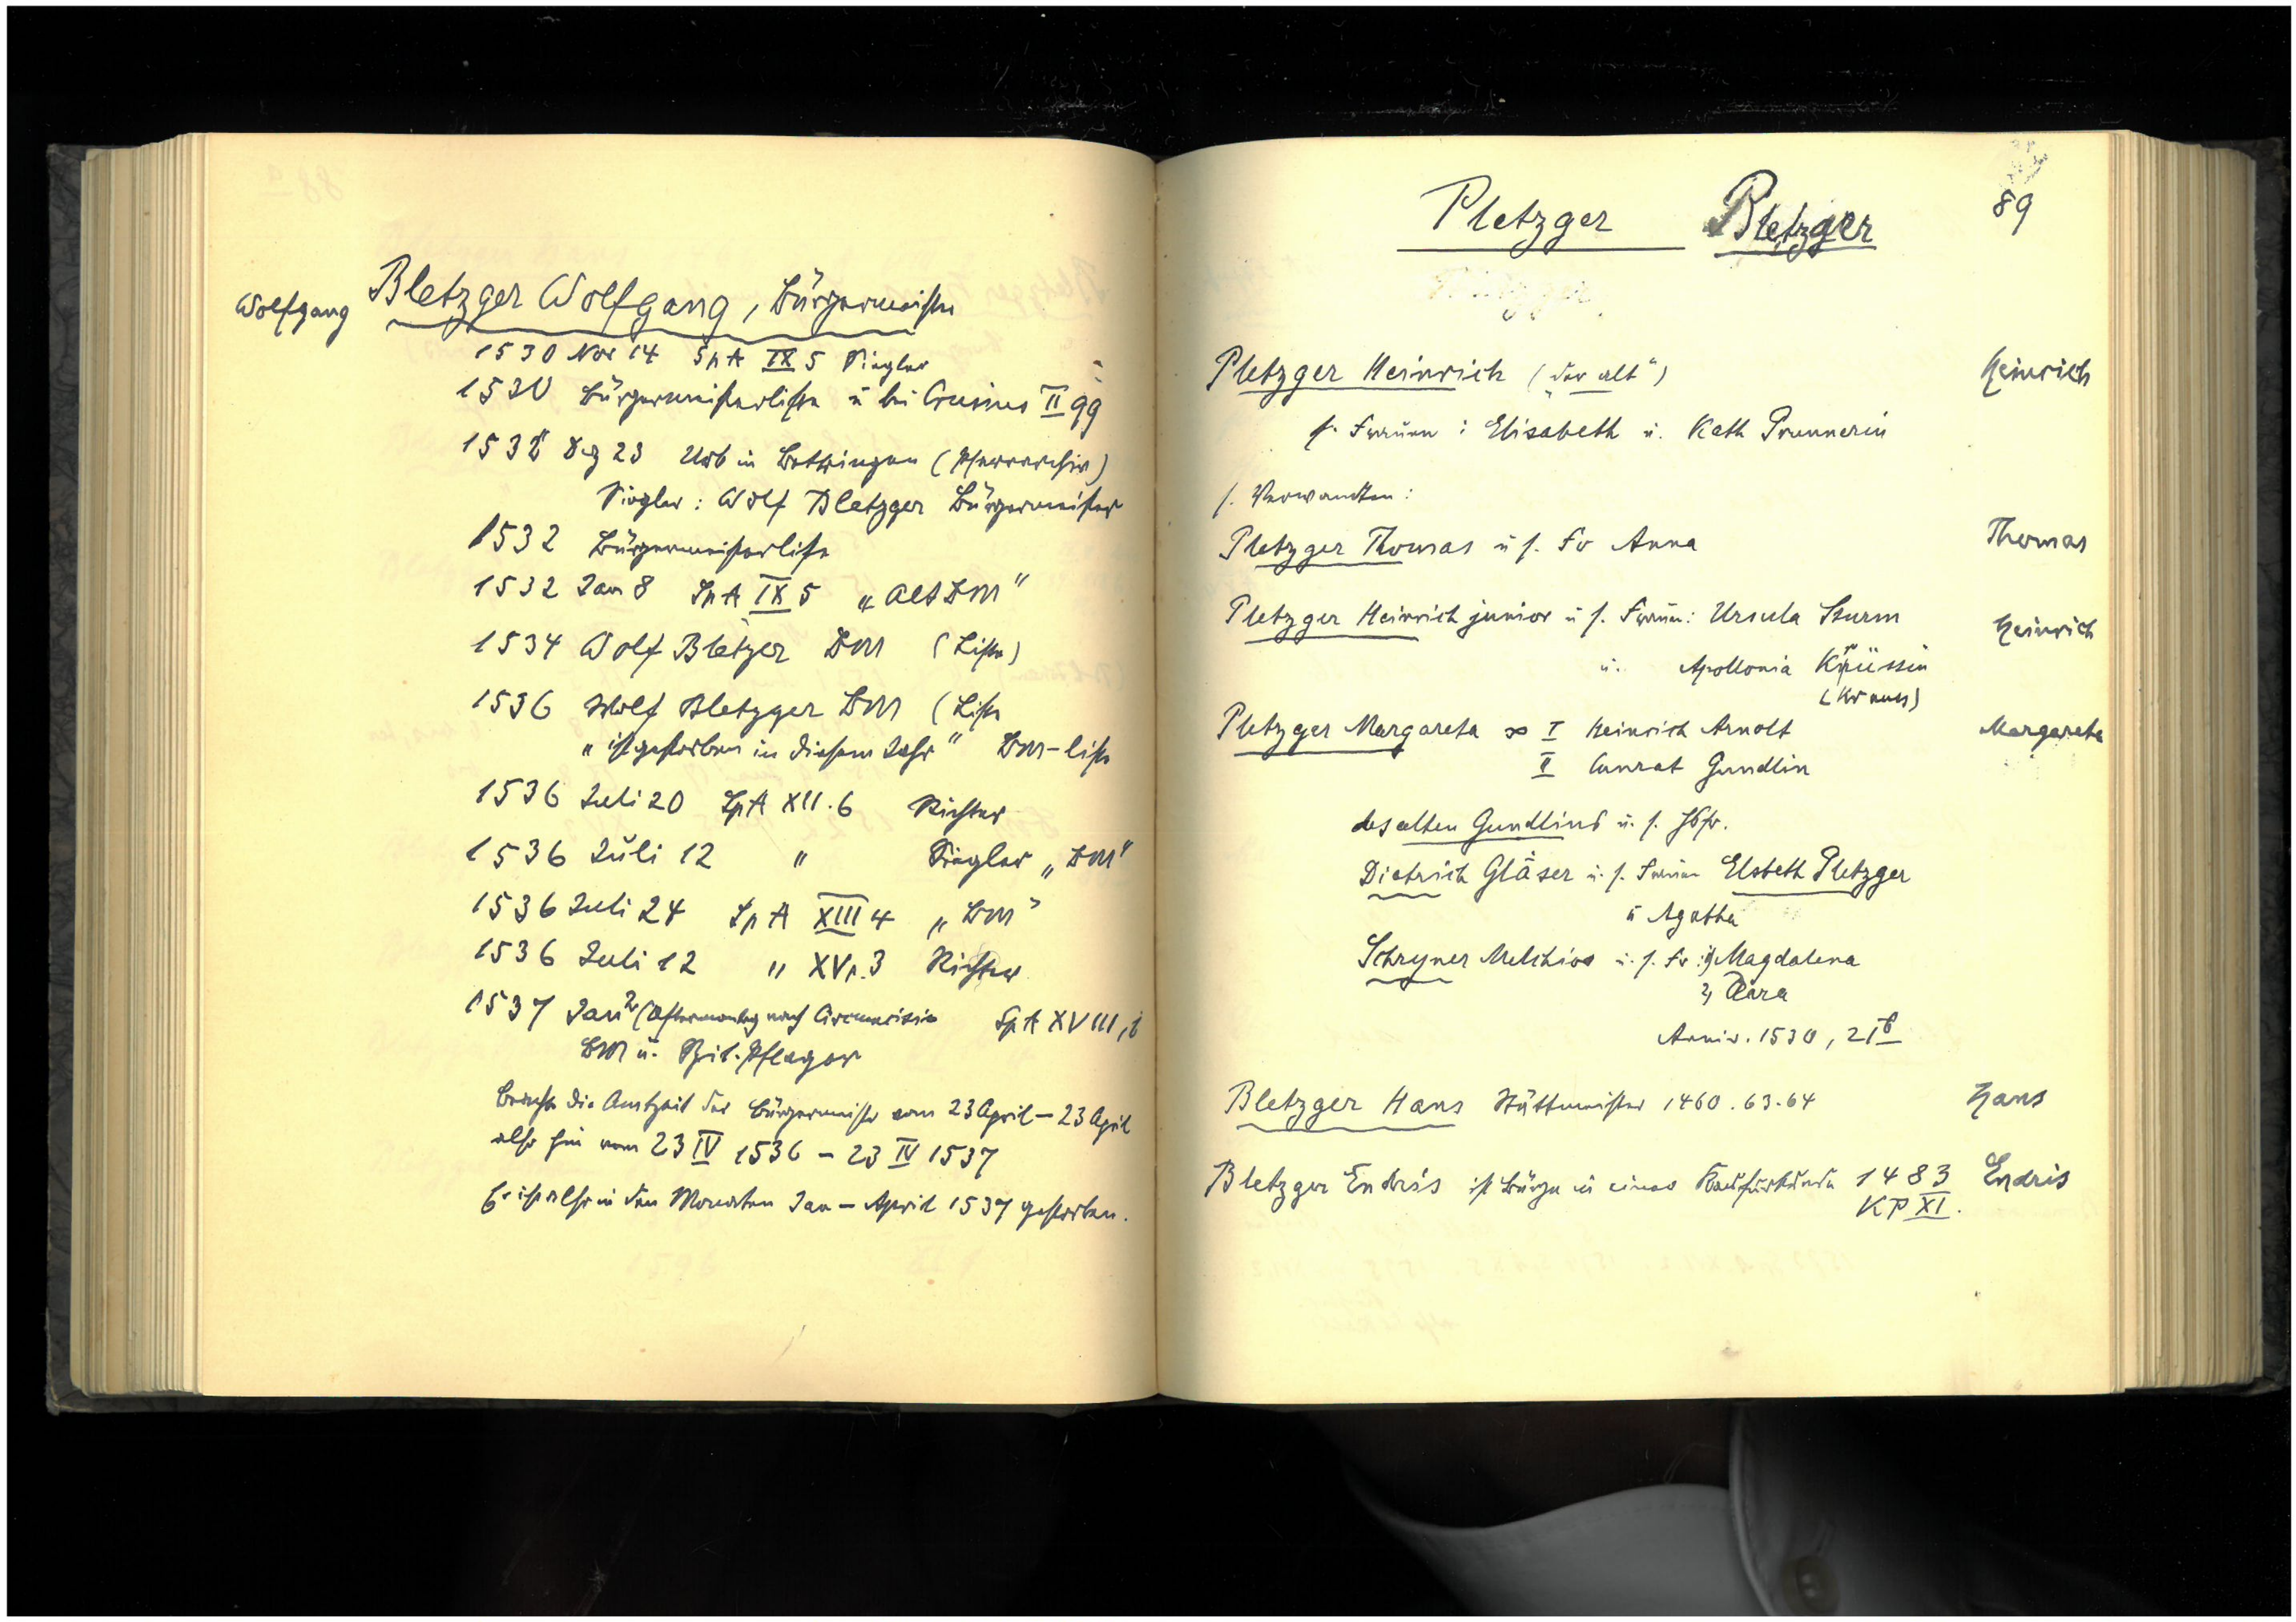 Wolfgang Bletzger Wolfgang, Bürgermeister
1530 Nov 14 SpA IX 5 Siegler
1530 Bürgermeisterliste u bei Crusius II 99
1532 Dez 23 Urb in Bettringen (Pfarrarchiv)
Siegler: Wolf Bletzger Bürgermeister
1532 Bürgermeisterliste
1532 Jan 8 SpA IX 5 „Alt BM"
1534 Wolf Bletzger BM (Liste)
1536 Wolf Bletzger BM (Liste
„ist gestorben in diesem Jahr" BM-liste
1536 Juli 20 SpA XII.6 Richter
1536 Juli 12 " Siegler „BM"
1536 Juli 24 SpA XIII 4 „BM"
1536 Juli 12 " XV,.3 Richter
1537 Jan 2 (Aftermontag nach Circumcisio SpA XVIII,
BM u. Spit. Pfleger
die Amtzeit der Bürgermeister vom 23 April – 23 April
also hier vom 23 IV 1536 – 23 IV 1537
Er ist also in den Monaten Jan – April 1537 gestorben.
89
Pletzger Bletzger
Pletzger Heinrich („der alt") Heinrich
s. Frauen: Elisabeth u. Kath Prunnerin
s. Verwandten:
Pletzger Thomas u s. Fr Anna Thomas
Pletzger Heinrich junior u s. Frauen: Ursula Sturm Heinrich
u. Apollonia Krüssin
(Kraus)
Pletzger Margareta ∞ I Heinrich Arnolt Margareta
II Cunrat Gundlin
des alten Gundlins u. s. Hsfr.
Dietrich Gläser u. s. Frauen Elsbeth Pletzger
u Agatha
Schryner Melchior u. s. Fr: 1) Magdalena
2) Clara
Anniv. 1530, 21b
Bletzger Hans Stättmeister 1460.63.64 Hans
Bletzger Endris ist Bürge in einer Kaufurkunde 1483 Endris
KP XI.